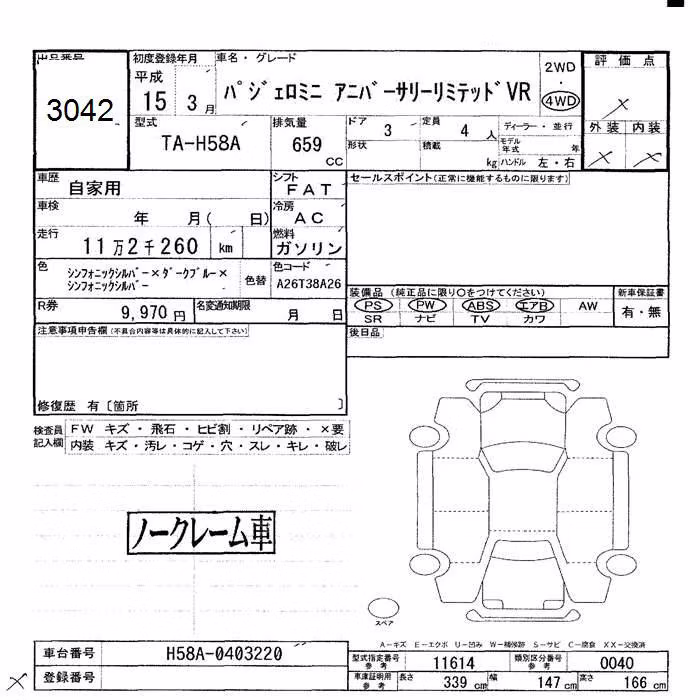 出品番号 初度登録年月 車名・グレード 2WD 評価点
3042 平成 15 3月 パジェロミニ アニバーサリーリミテッドVR ・ 4WD ×
型式 排気量 ドア 3 定員 4 人 ディーラー・並行 外装 内装
TA-H58A 659 CC 形状 積載 kg モデル年式 年 × ×
ハンドル 左・右
車歴 自家用 シフト FAT セールスポイント(正常に機能するものに限ります)
車検 年 月( 日) 冷房 AC
走行 11万2千260 km 燃料 ガソリン
色 シンフォニックシルバー×ダークブルー× 色替 色コード
シンフォニックシルバー A26T38A26
装備品 (純正品に限り○をつけてください) 新車保証書
R券 9,970円 名変通知期限 月 日 PS PW ABS エアB AW 有・無
SR ナビ TV カワ
注意事項申告欄(不具合内容等は具体的に記入して下さい) 後日品
修復歴 有〔箇所 〕
検査員 FW キズ・飛石・ヒビ割・リペア跡・×要
記入欄 内装 キズ・汚レ・コゲ・穴・スレ・キレ・破レ
ノークレーム車
スペア
A-キズ E-エクボ U-凹み W-補修跡 S-サビ C-腐食 XX-交換済
車台番号 H58A-0403220 型式指定番号 参考 11614 類別区分番号 参考 0040
× 登録番号 車庫証明用 参考 長さ 339 cm 幅 147 cm 高さ 166 cm